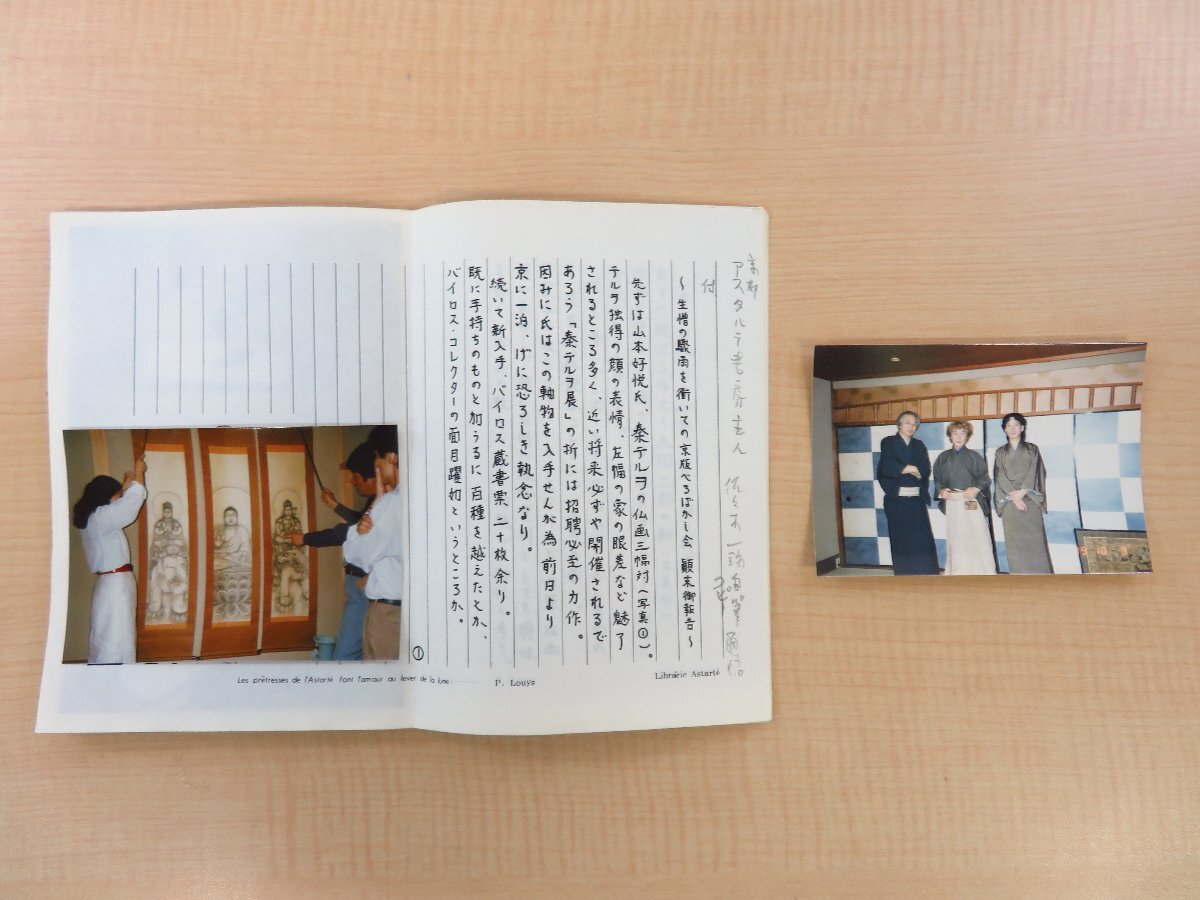 京都
アスタルテ書房主人 佐々木一彌 直筆通信
付
〜生憎の驟雨を衝いての京版べろばかし会 顛末御報告〜
先ずは山本好悦氏、秦テルヲの仏画三幅対(写真①)。
テルヲ独得の顔の表情、左幅の象の眼差など魅了
されるところ多く、近い将来必ずや開催されるで
あろう「秦テルヲ展」の折には招聘必至の力作。
因みに氏はこの軸物を入手せんが為 前日より
京に一泊、げに恐ろしき執念なり。
続いて新入手、バイロス蔵書票 二十枚余り。
既に手持ちのものと加うるに百種を越えたとか、
バイロス・コレクターの面目躍如というところか。
①
Les prêtresses de l'Astarté font l'amour au lever de la lune
P. Louÿs
Librairie Astarté